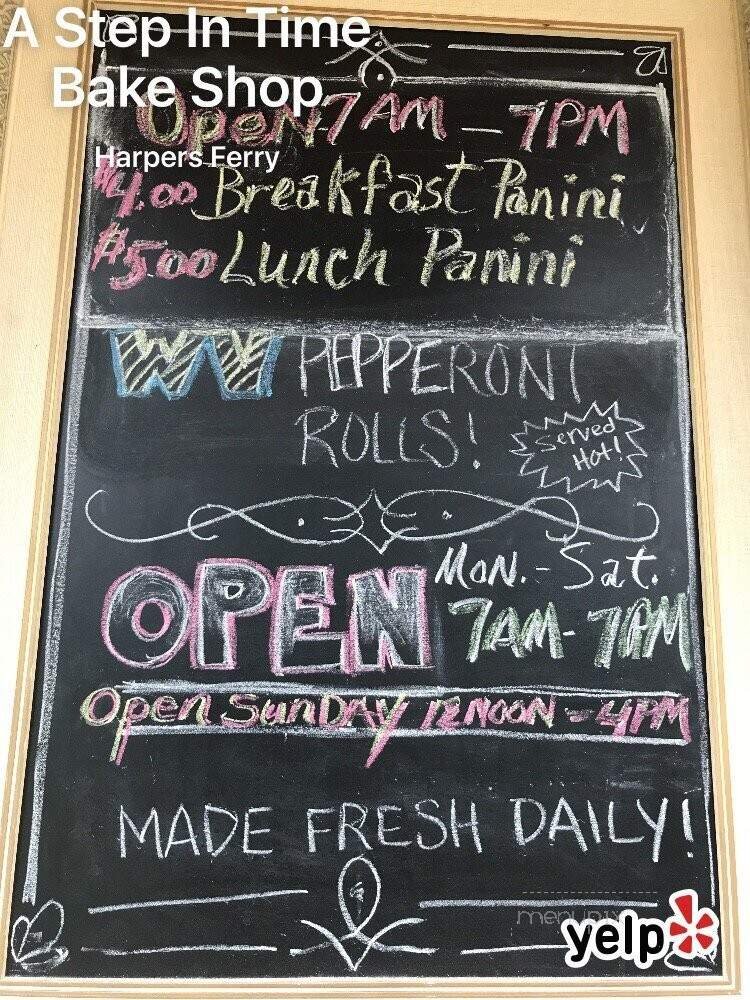 A Step In Time
Bake Shop
Open 7AM - 7PM
Harpers Ferry
$4.00 Breakfast Panini
$5.00 Lunch Panini
WV PEPPERONI
ROLLS!
Served
Hot!
OPEN
Mon. - Sat.
7AM - 7PM
Open SunDAY 12 NOON - 4PM
MADE FRESH DAILY!
yelp